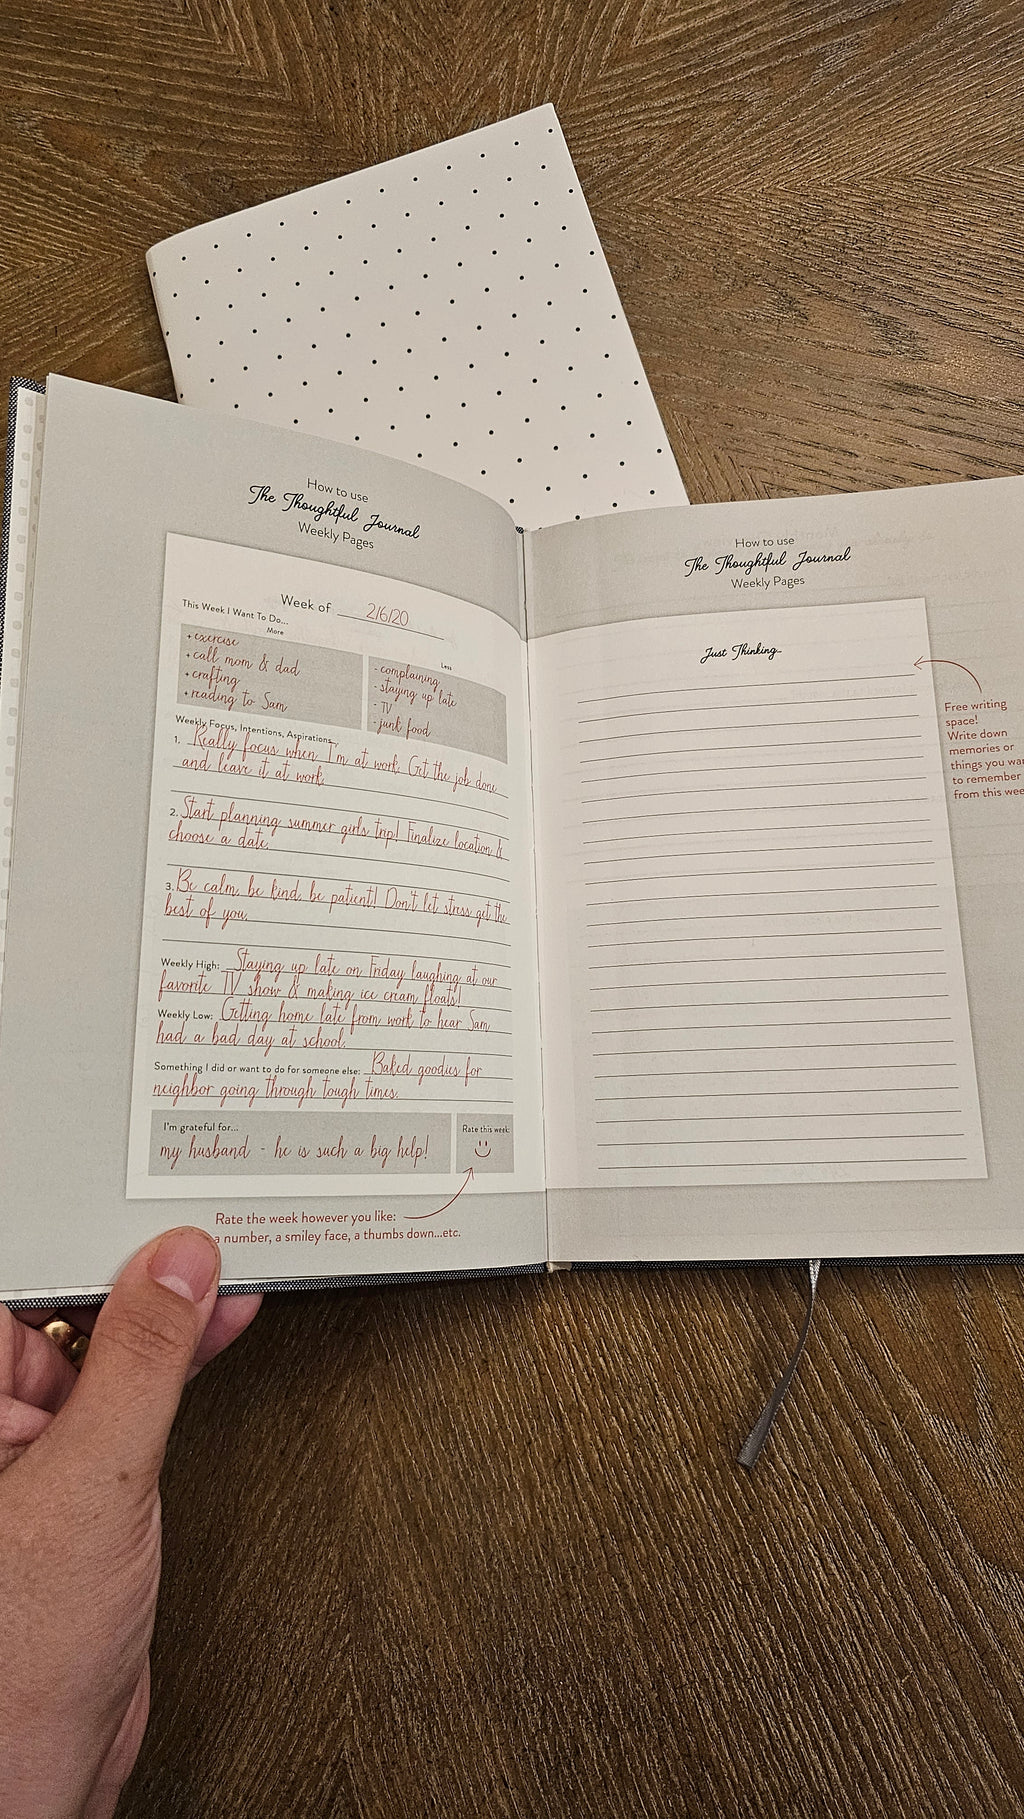 How to use
The Thoughtful Journal
Weekly Pages
Week of 2/6/20
This Week I Want To Do...
More
+exercise
+call mom & dad
+crafting
+reading to Sam
Less
-complaining
-staying up late
-TV
-junk food
Weekly Focus, Intentions, Aspirations...
1. Really focus when I'm at work. Get the job done
and leave it at work.
2. Start planning summer girls trip! Finalize location &
choose a date.
3. Be calm, be kind, be patient! Don't let stress get the
best of you.
Weekly High: Staying up late on Friday laughing at our
favorite TV show & making ice cream floats!
Weekly Low: Getting home late from work to hear Sam
had a bad day at school.
Something I did or want to do for someone else: Baked goodies for
neighbor going through tough times.
I'm grateful for...
my husband - he is such a big help!
Rate this week:
Rate the week however you like:
a number, a smiley face, a thumbs down...etc.
How to use
The Thoughtful Journal
Weekly Pages
Just Thinking...
Free writing
space!
Write down
memories or
things you wa
to remember
from this wee